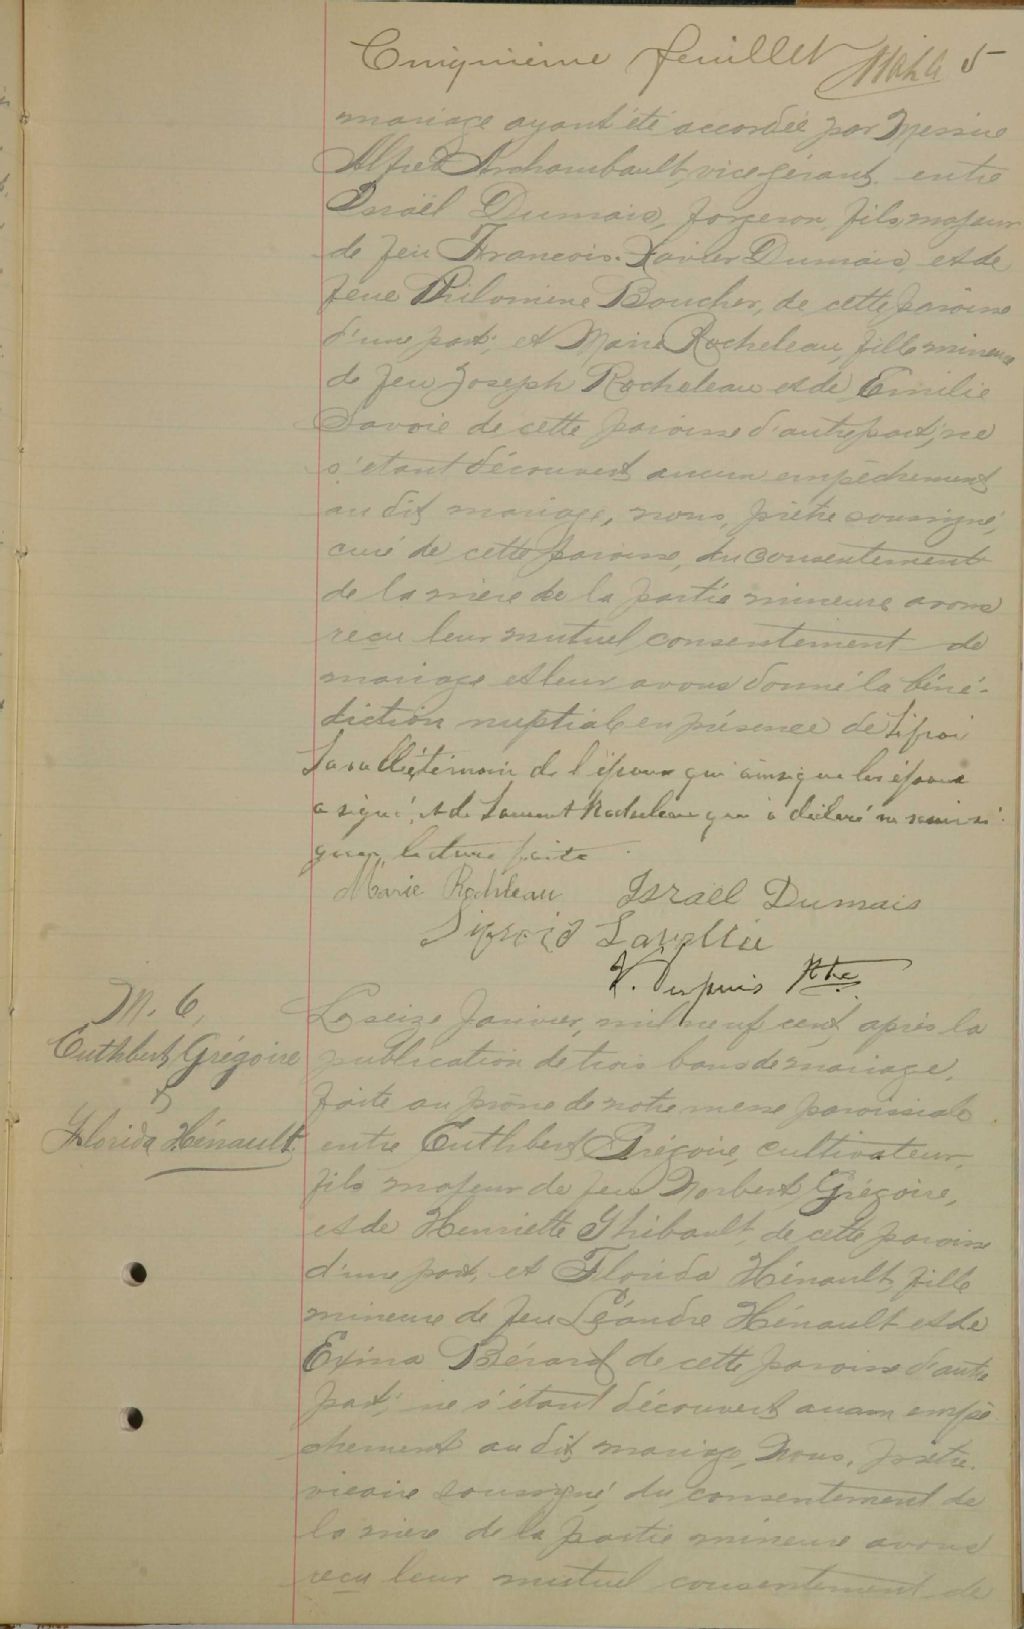 Cinquième feuillet 5
mariage ayant été accordée par Messire
Alfred Archambault, vice gérant, entre
Israël Dumais, forgeron, fils majeur
de feu Francois-Xavier Dumais, et de
feue Philomène Boucher, de cette paroisse
d'une part; et Marie Rocheleau, fille mineure
de feu Joseph Rocheleau et de Emilie
Savoie de cette paroisse d'autre part; ne
s'étant découvert aucun empêchement
au dit mariage, nous, prêtre soussigné,
curé de cette paroisse, du consentement
de la mère de la partie mineure avons
reçu leur mutuel consentement de
mariage et leur avons donné la béné-
diction nuptiale en présence de Sifroi
Lavallée témoin de l'époux qui ainsi que les époux
a signé, et de Laurent Rocheleau qui a déclaré ne savoir si-
gner, lecture faite.
Marie Rochleau Israël Dumais
Sifroid Lavallée
V. Dupuis Ptre
M. 6,
Cuthbert Grégoire
&
Florida Hénault.
Le seize Janvier, mil neuf cent, après la
publication de trois bans de mariage,
faite au prône de notre messe paroissiale
entre Cuthbert Grégoire, cultivateur,
fils majeur de feu Norbert Grégoire,
et de Henriette Thibault, de cette paroisse
d'une part, et Florida Hénault, fille
mineure de feu Léandre Hénault et de
Exina Bérard de cette paroisse d'autre
part; ne s'étant découvert aucun empê
chement au dit mariage, Nous, prêtre
vicaire soussigné, du consentement de
la mère de la partie mineure avons
reçu leur mutuel consentement de